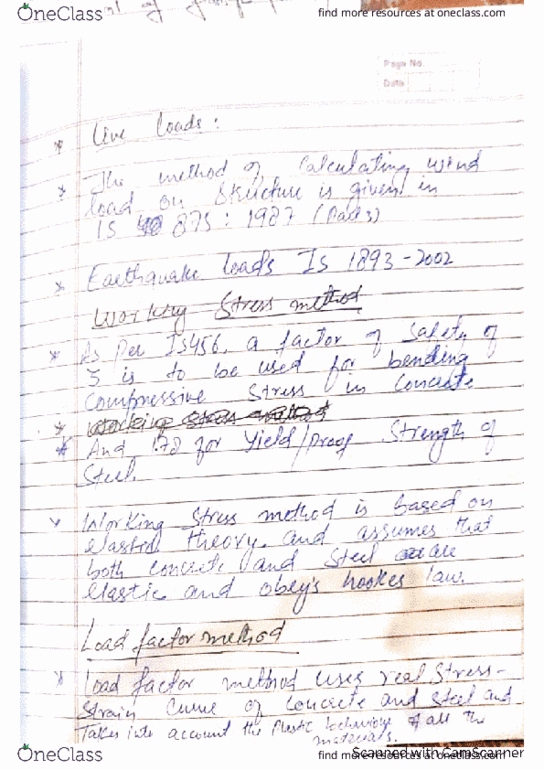 OneClass
find more resources at oneclass.com
Page No.
Date
* Live Loads :
* The method of Calculating wind
load on Structure is given in
IS 875 : 1987 (Part 3)
* Earthquake loads IS 1893-2002
Working Stress method
* As Per IS456, a factor of Safety of
3 is to be used for bending
Compressive Stress in Concrete
* Working stress method
* And 1.78 for Yield/Proof Strength of
Steel.
* Working stress method is based on
elastic theory and assumes that
both concrete and Steel are
elastic and obey's hookes law.
Load factor method
* Load factor method uses real Stress-
Strain Curve of Concrete and Steel and
Takes into account the Plastic behaviour of all the
materials.
Scanned with CamScanner
OneClass
find more resources at oneclass.com